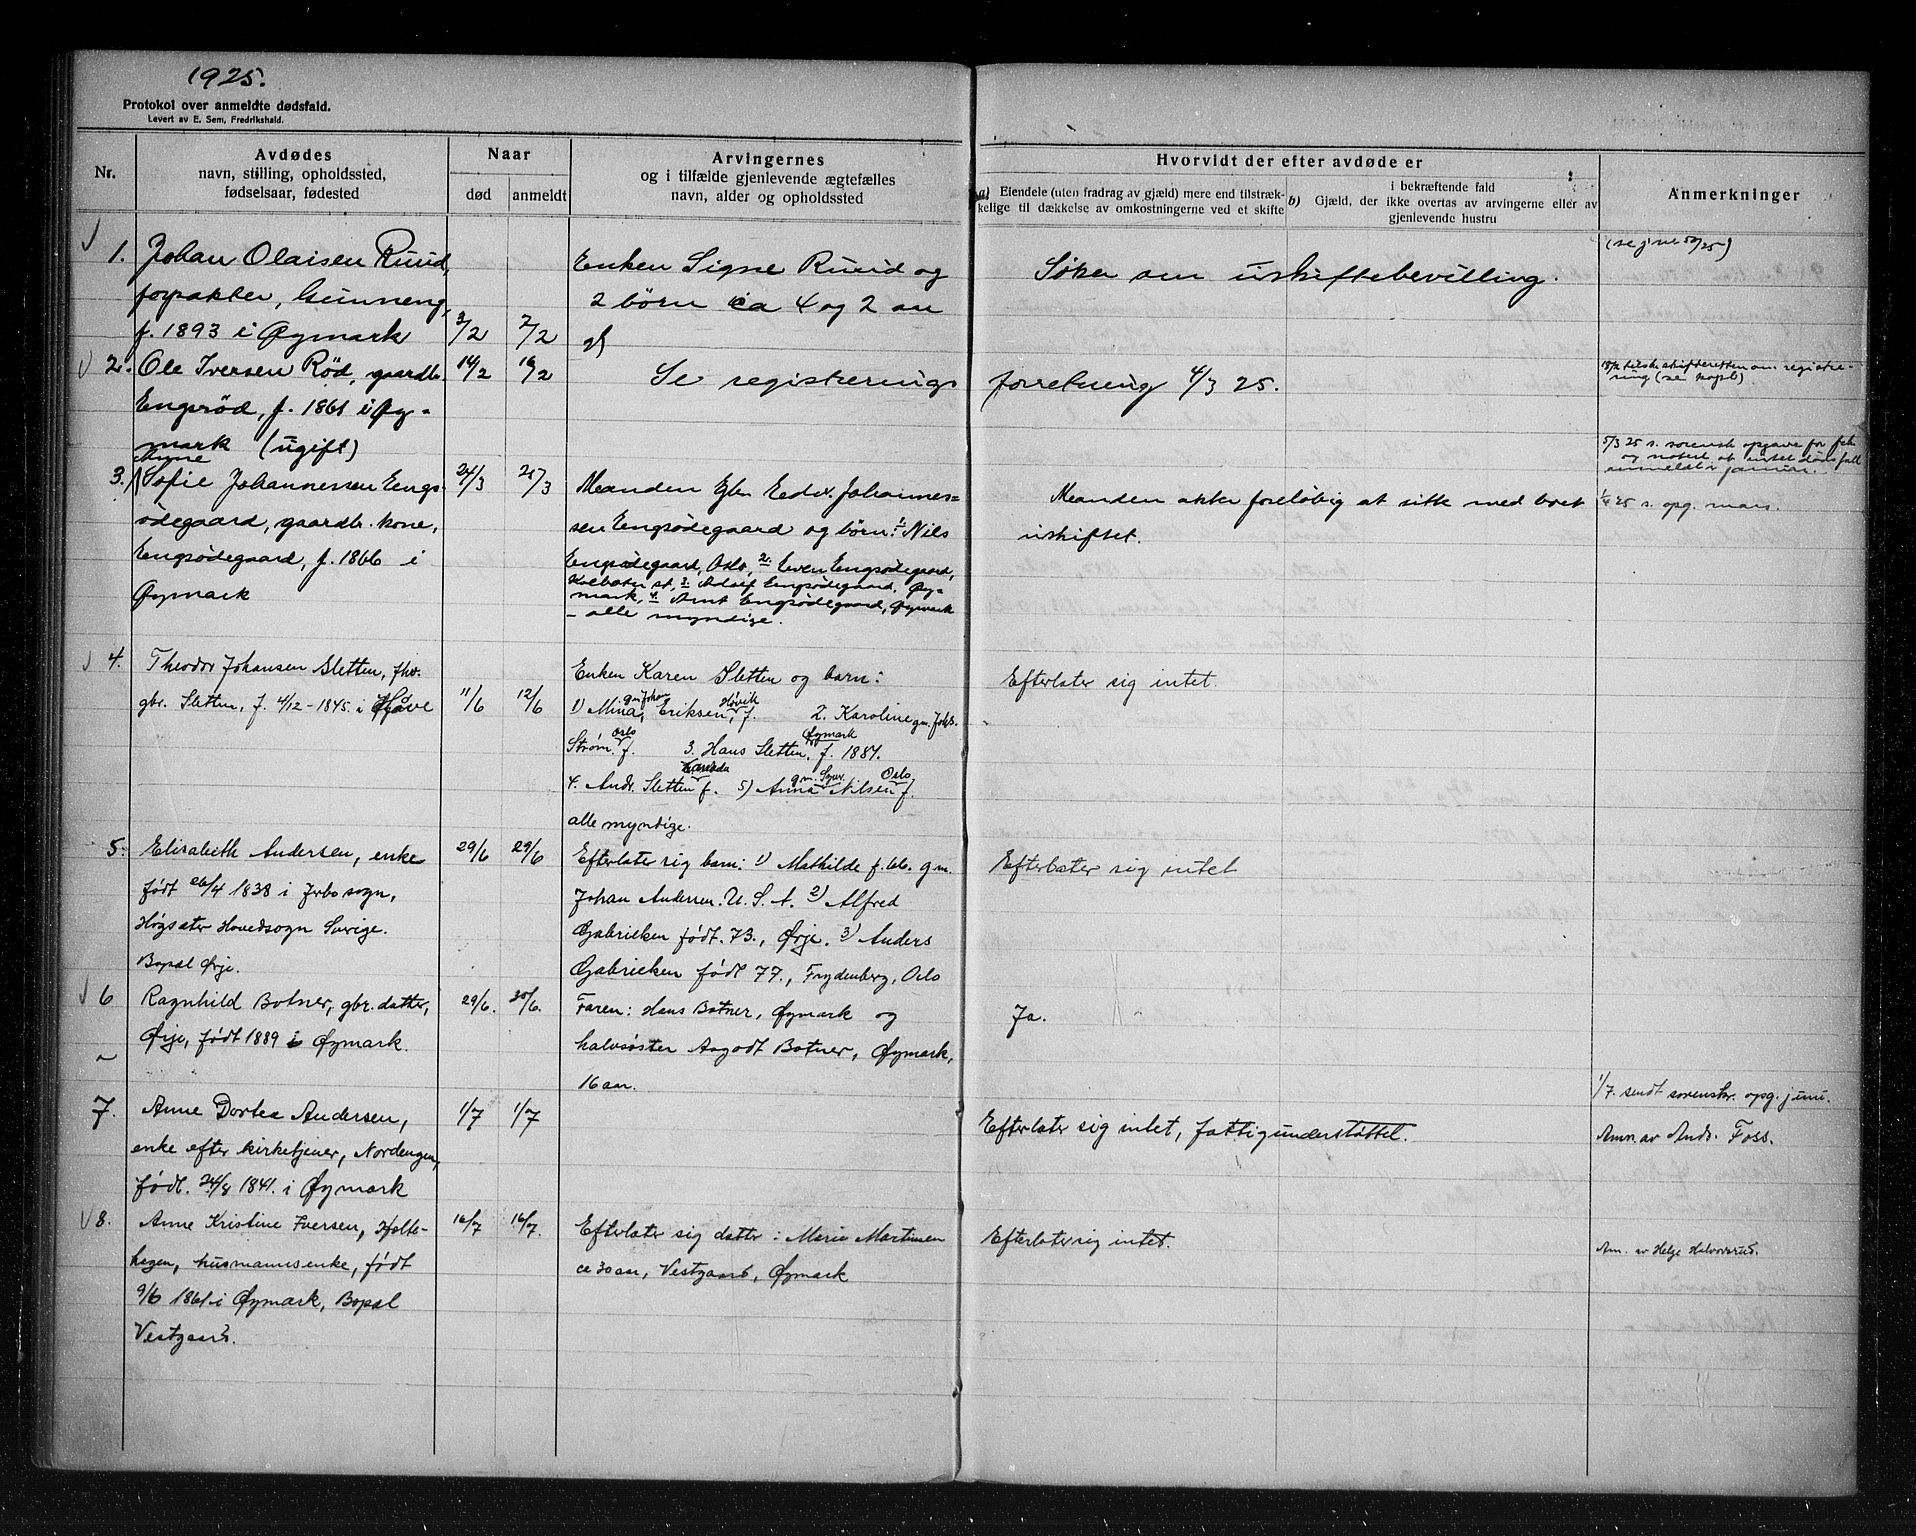 1925.
Protokol over anmeldte dødsfald.
Levert av E. Sem, Fredrikshald.
Nr.
Avdødes
navn, stilling, opholdssted,
fødselsaar, fødested
Naar
død
anmeldt
Arvingernes
og i tilfælde gjenlevende ægtefælles
navn, alder og opholdssted
Hvorvidt der efter avdøde er
a) Eiendele (uten fradrag av gjæld) mere end tilstræk-
kelige til dækkelse av omkostningerne ved et skifte
i bekræftende fald
b) Gjæld, der ikke overtas av arvingerne eller av
gjenlevende hustru
Anmerkninger
1.
Johan Olaisen Ruud,
forpakter, Gunneng,
f. 1893 i Øymark
3/2
7/2
Enken Signe Ruud og
2 børn ca 4 og 2 aar
gl
Søker om uskiftebevilling.
2.
Ole Iversen Rød, gaardb.
Engsrød, f. 1861 i Øy-
mark (ugift)
14/2
16/2
Se registrerings
forretning 4/3 25.
18/2 tilsk. skifteretten om registre-
ring (se kopb).
5/3 25 s. sorensk opgave for feb
og notert at intet dødsfall
anmeldt i januar.
3.
Sofie Johannessen Engs-
ødegaard, gaardbr. kone,
Engsødegaard, f. 1866 i
Øymark
24/3
25/3
Manden Gbr. Edv. Johannes-
sen Engsødegaard og børn: 1. Nils
Engsødegaard, Oslo, 2. Even Engsødegaard,
Kolbotn st, 3. Adolf Engsødegaard, Øy-
mark, 4. Arnt Engsødegaard, Øymark
- alle myndige.
Manden akter foreløbig at sitte med boet
uskiftet.
1/4 25 s. opg. mars.
4.
Theodor Johansen Sletten, fhv.
gbr. Sletten, f. 4/12 - 1845. i
11/6
12/6
Enken Karen Sletten og barn:
1) Mina, gm Johan Eriksen, Høvik f. 2. Karoline gm. Johs.
Strøm. Oslo f. 3. Hans Sletten, Øymark f. 1881.
4. Andr. Sletten Kanada f. 5) Anna gm. Sigur. Nilsen Oslo f.
alle myndige.
Efterlater sig intet.
5.
Elisabeth Andersen, enke
født 26/4 1838 i Jerbo sogn,
Høgsäter Hovedsogn Sverige.
Bopæl Ørje.
29/6
29/6
Efterlater sig barn: 1) Mathilde f. 66. gm.
Johan Andersen. U. S. A. 2) Alfred
Gabrielsen født. 73., Ørje. 3) Anders
Gabrielsen født 77., Frydenberg, Oslo
Efterlater sig intet
6
Ragnhild Botner, gbr. datter,
Ørje, født 1889 i Øymark.
29/6.
30/6.
Faren: Hans Botner, Øymark og
halvsøster Aagodt Botner, Øymark,
16 aar.
Ja.
1/7. sendt sorenskr. opg. juni.
7.
Anne Dortea Andersen,
enke efter kirketjener, Nordengen,
født. 24/8 1841. i Øymark
1/7
1/7
Efterlater sig intet, fattigunderstøttet.
Anm. av Andr. Foss.
8.
Anne Kristine Iversen, Holte-
hagen, husmannsenke, født
9/6 1861 i Øymark, Bopæl
Vestgaard.
16/7
16/7.
Efterlater sig datter: Marie Martinsen
ca 30 aar, Vestgaard, Øymark
Efterlater sig intet.
Am. av Helge Halvorsrud.